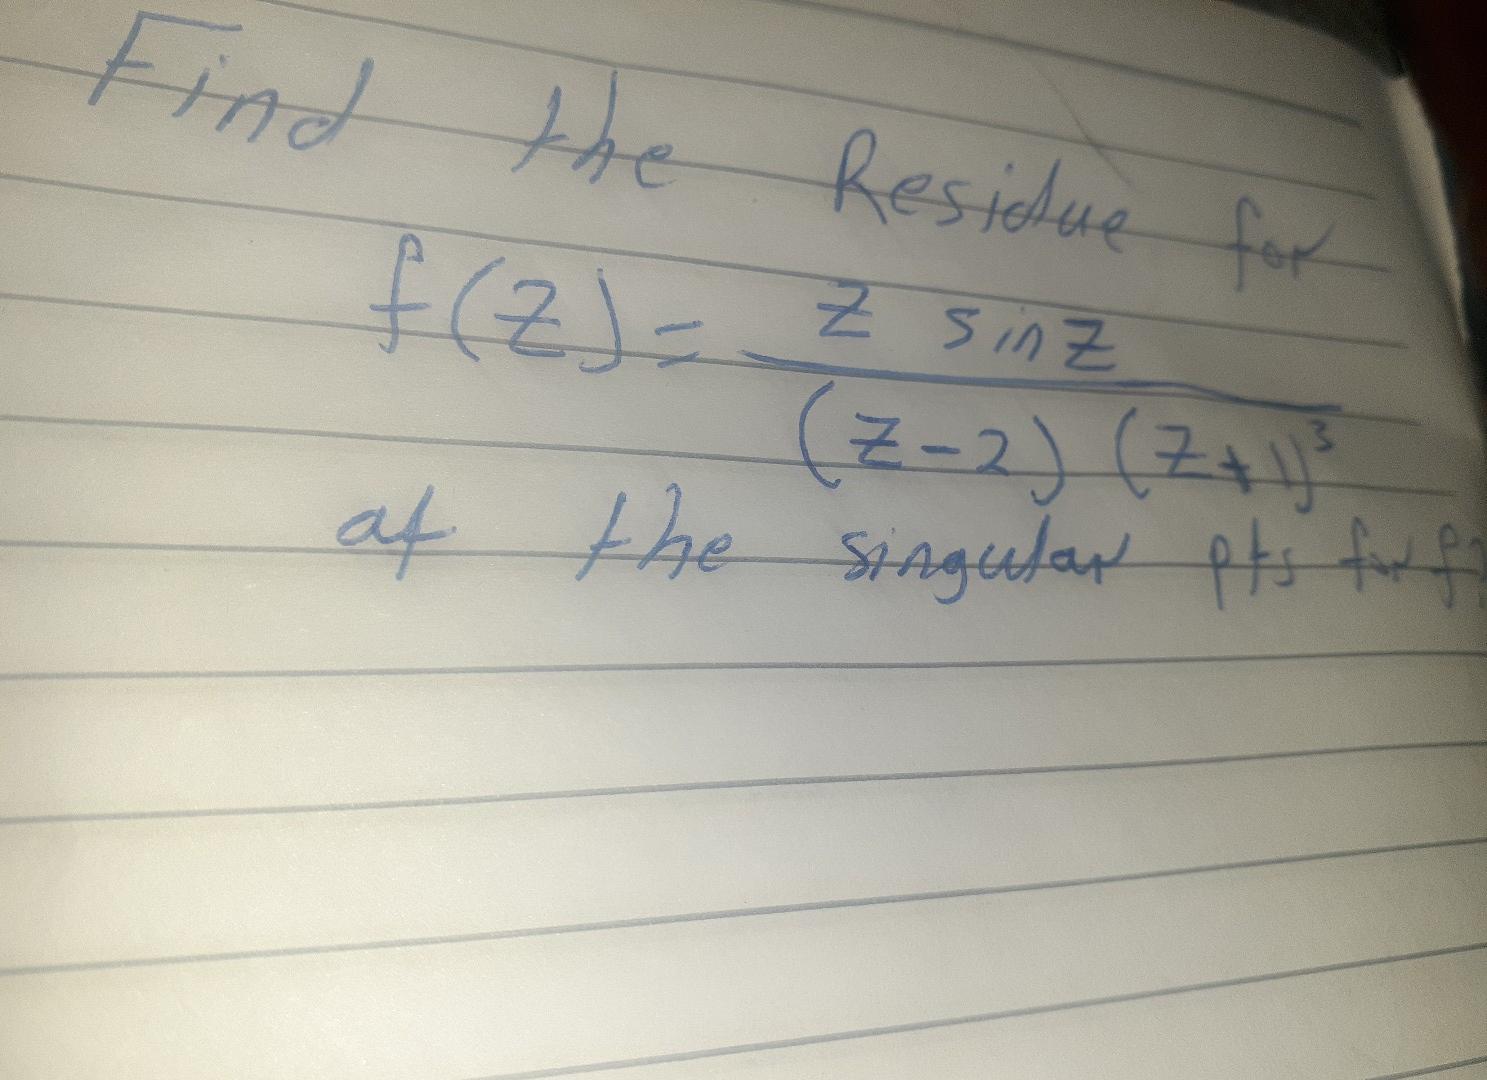 Find the Residue for
f(z) = z sin z / (z-2) (z+1)³
at the singular pts for f?